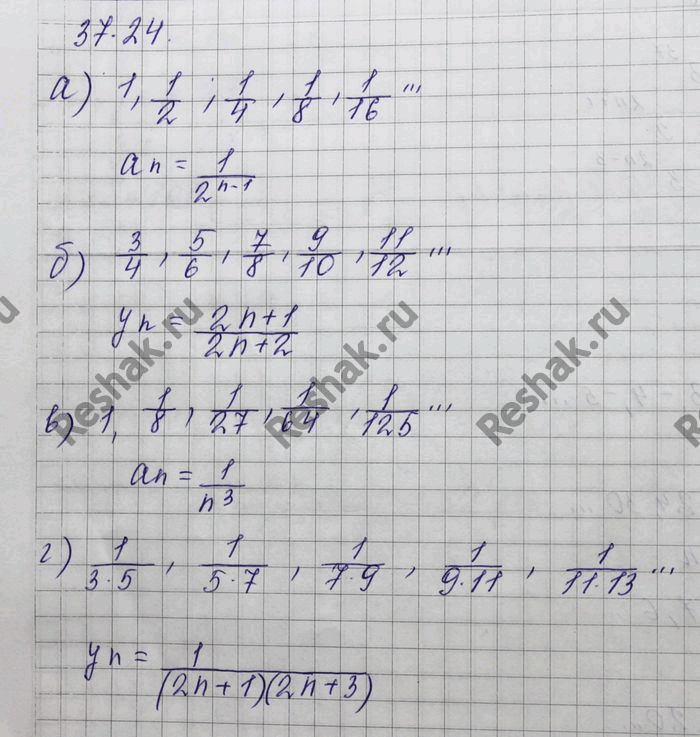 37.24.
а) 1, 1/2 ; 1/4 , 1/8 , 1/16 ...
an = 1/2^(n-1)
б) 3/4 , 5/6 , 7/8 , 9/10 , 11/12 ...
yn = (2n+1)/(2n+2)
в) 1, 1/8 , 1/27 , 1/64 , 1/125 ...
an = 1/n^3
г) 1/(3·5) , 1/(5·7) , 1/(7·9) , 1/(9·11) , 1/(11·13) ...
yn = 1/((2n+1)(2n+3))
Reshak.ru
Reshak.ru
Reshak.ru